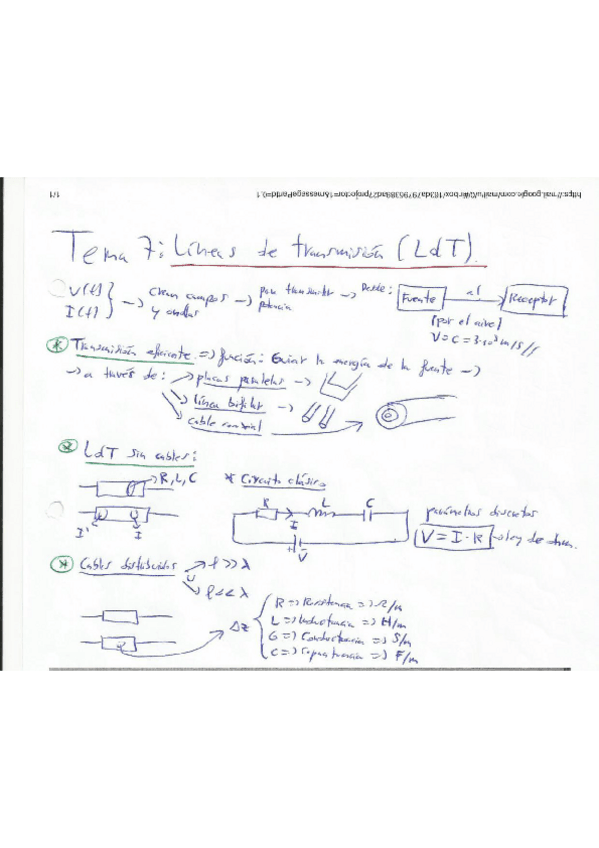 1/1
Tema 7: Líneas de transmisión (LdT).
V(t) I(t) } → Crean campos y ondas → para transmitir potencia → Desde: Fuente → Receptor
(por el aire)
V=C=3·10⁸ m/s
* Transmisión eficiente => función: Guiar la energía de la fuente →
→ a través de: → placas paralelas →
línea bifilar →
cable coaxial
* LdT sin cables:
R, L, C
* Circuito clásico
R L C
I
I' I
V
parámetros discretos
V = I · R → ley de Ohm.
* Cables distribuidos → l >> λ
l << λ
Δz { R => Resistencia => Ω/m
L => Inductancia => H/m
G => Conductancia => S/m
C => Capacitancia => F/m